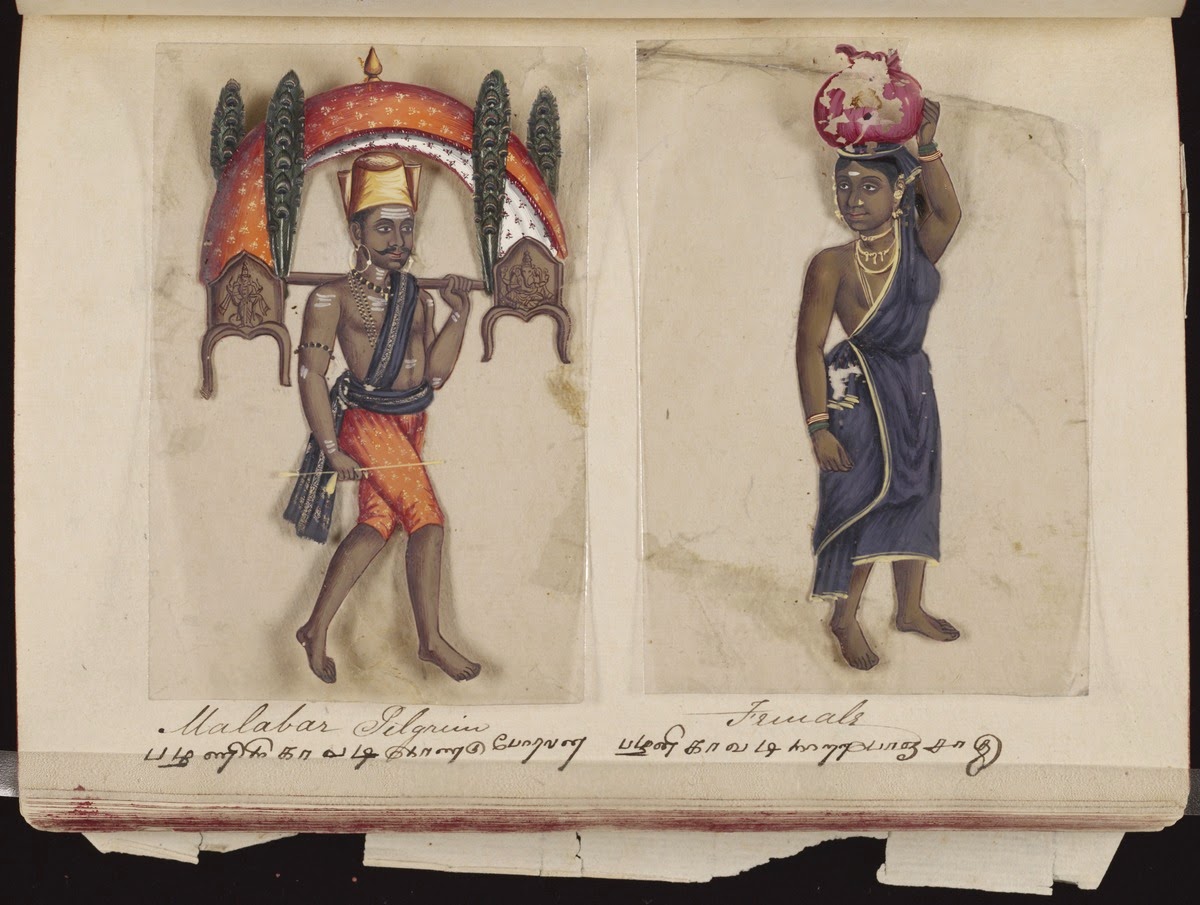 Malabar Pilgrim
பழனிக்காவடி கொண்டு போரவன்
Female
பழனி காவடி